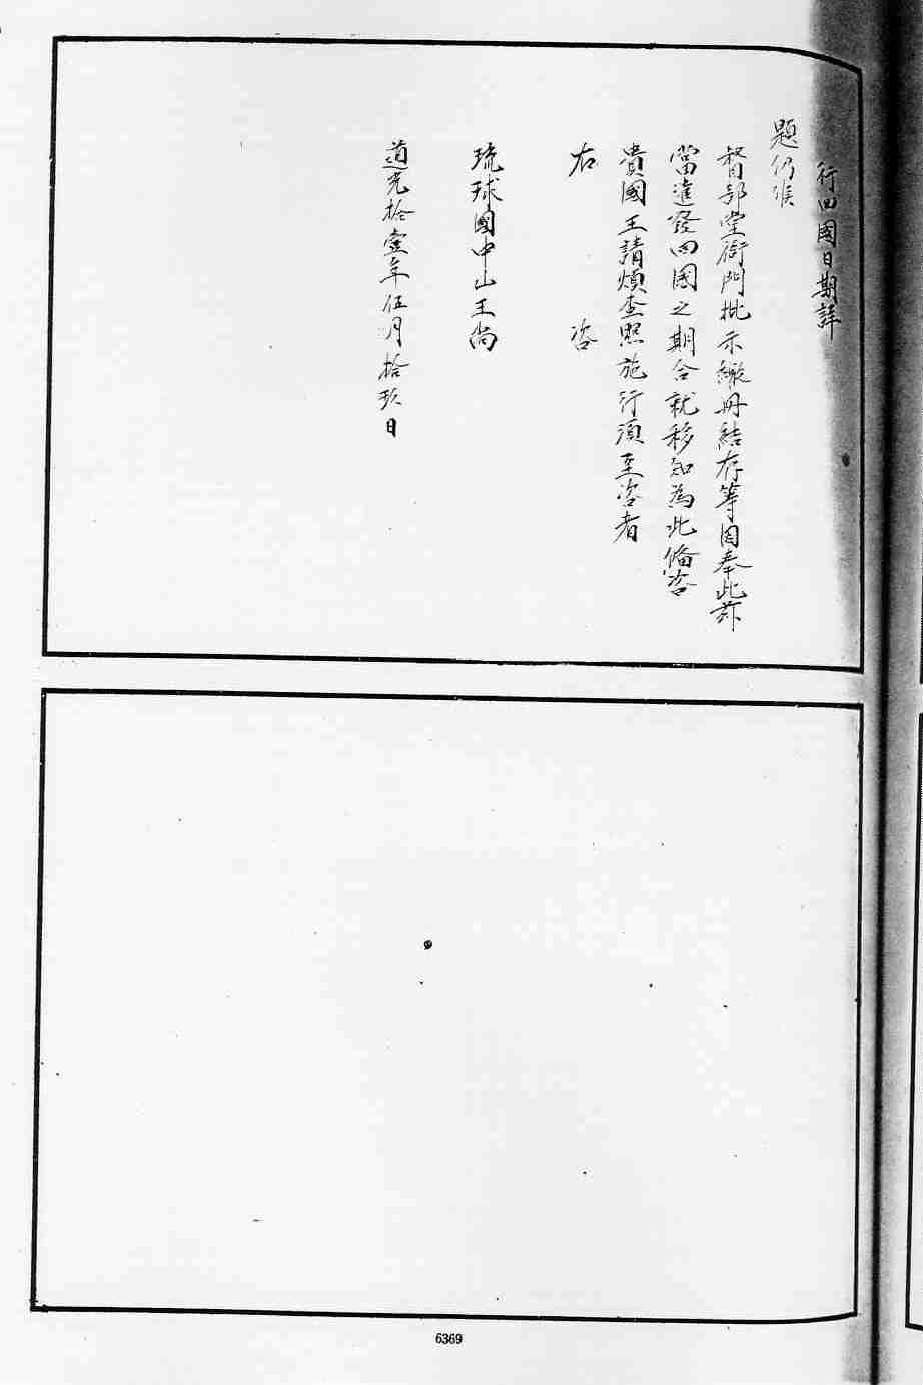 行回國日期詳
題仍候
督部堂衙門批示繳冊結存等因奉此茲
當遣發回國之期合就移知為此備咨
貴國王請煩查照施行須至咨者
右咨
琉球國中山王尚
道光拾壹年伍月拾玖日
6369